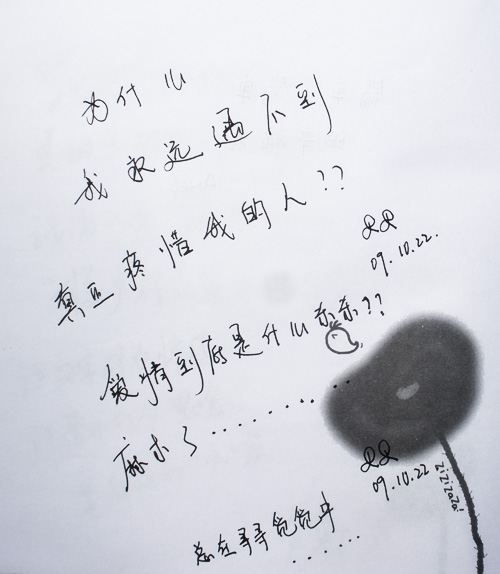 为什么
我永远遇不到
真正疼惜我的人??
09.10.22.
爱情到底是什么东东??
麻木了.........
09.10.22
zizizaza!
总在寻寻觅觅中
......